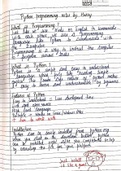 Python Programming notes by Harry
Programming
Just like we use Hindi or English to communicate
with each other, we use a Programming
language like Python to communicate with
the computer.
Programming is a way to instruct the computer
to perform various tasks.
What is Python?
Python is a simple and easy to understand
language which feels like reading simple
English. This Pseudo code nature of Python makes
it easy to learn and understandable by beginners
Features of Python
Easy to understand = Less development time
Free and open source
High level language
Portable = works on Linux/Windows/Mac
+ Fun to work with
Installation
Python can be easily installed from python.org
When you click on the download button, python
can be installed right after you complete the setup
by executing the file for your platform.
Just install
it like a game